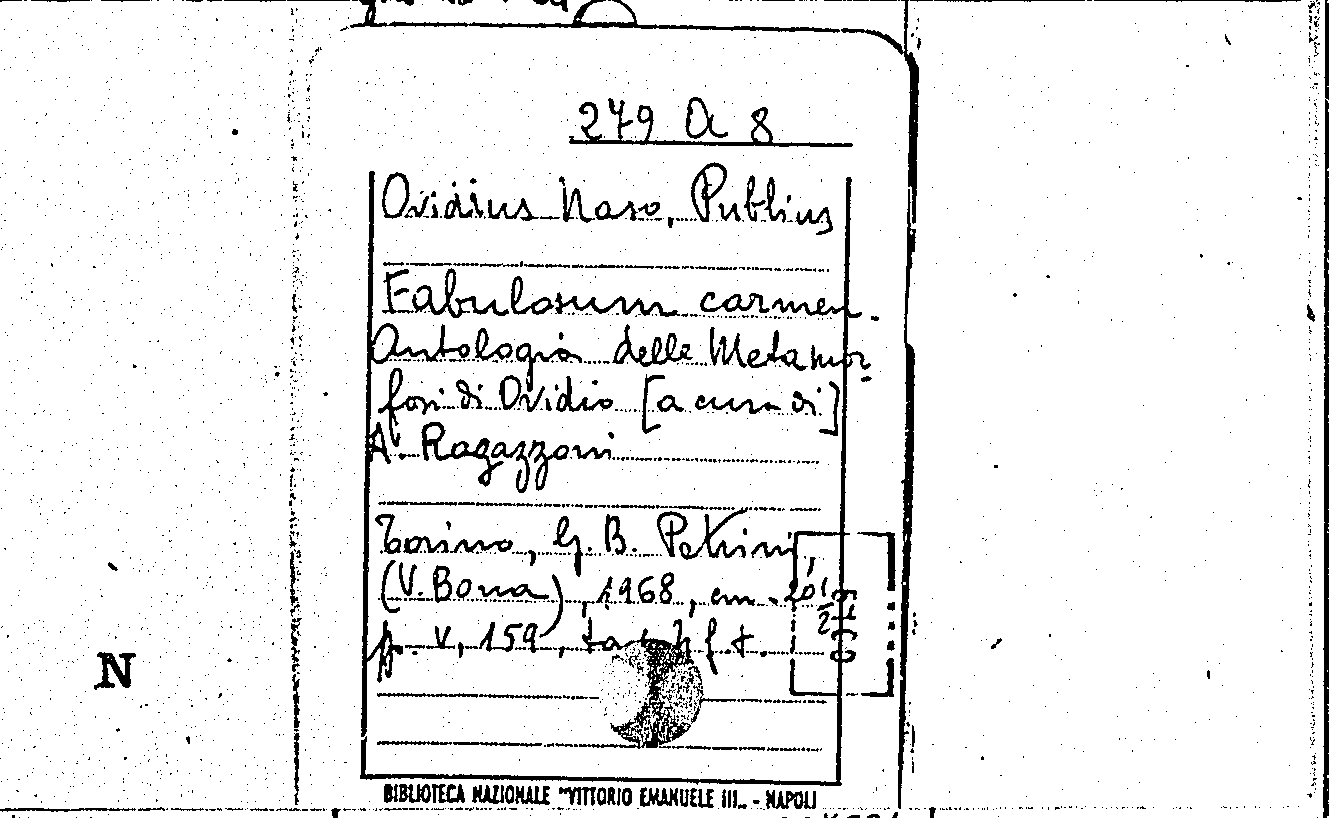 279 A 8
Ovidius Naso, Publius
Fabulosum carmen.
Antologia delle Metamor-
fosi di Ovidio [a cura di]
A. Ragazzoni
Torino, G. B. Petrini
(V. Bona), 1968, cm. 20 1/2
p. V, 159, f. t.
N
BIBLIOTECA NAZIONALE "VITTORIO EMANUELE III„ - NAPOLI